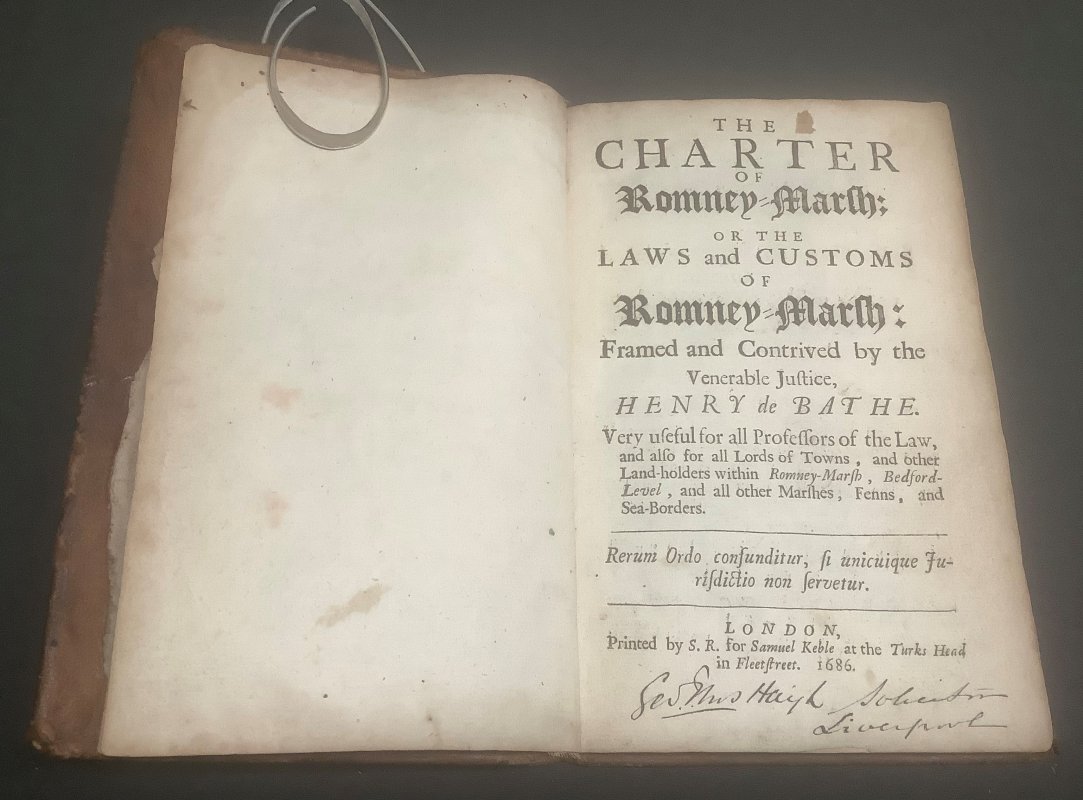 THE
CHARTER
OF
Romney-Marſh:
OR THE
LAWS and CUSTOMS
OF
Romney-Marſh:
Framed and Contrived by the
Venerable Juſtice,
HENRY de BATHE.
Very uſeful for all Profeſſors of the Law,
and alſo for all Lords of Towns, and other
Land-holders within Romney-Marſh, Bedford-
Level, and all other Marſhes, Fenns, and
Sea-Borders.
Rerum Ordo confunditur, ſi unicuique Ju-
riſdictio non ſervetur.
LONDON,
Printed by S. R. for Samuel Keble at the Turks Head
in Fleetſtreet. 1686.
Haigh Solicitor
Liverpool